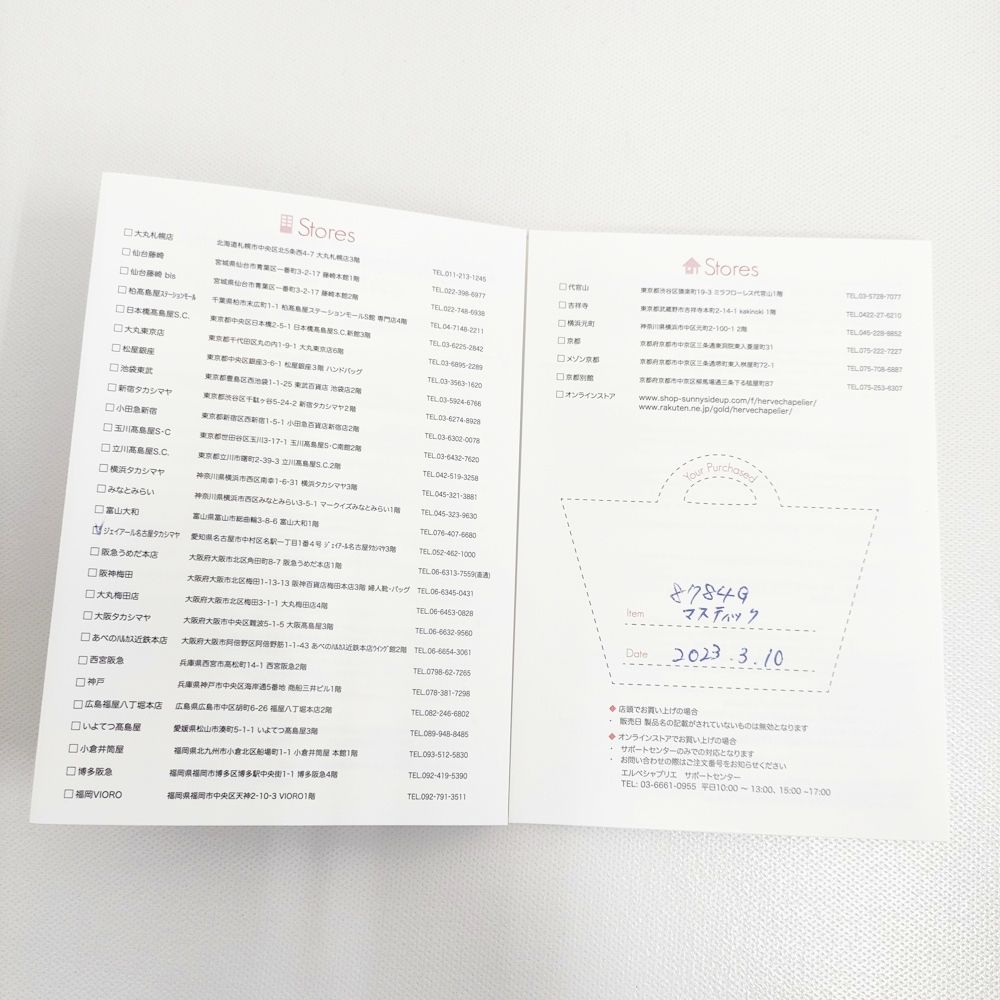 Stores
大丸札幌店 北海道札幌市中央区北5条西4-7 大丸札幌店3階 TEL.011-213-1245
仙台藤崎 宮城県仙台市青葉区一番町3-2-17 藤崎本館1階 TEL.022-398-6977
仙台藤崎 bis 宮城県仙台市青葉区一番町3-2-17 藤崎本館2階 TEL.022-748-6938
柏髙島屋ステーションモール 千葉県柏市末広町1-1 柏髙島屋ステーションモールS館 専門店4階 TEL.04-7148-2211
日本橋髙島屋S.C. 東京都中央区日本橋2-5-1 日本橋髙島屋S.C.新館3階 TEL.03-6225-2842
大丸東京店 東京都千代田区丸の内1-9-1 大丸東京店6階 TEL.03-6895-2289
松屋銀座 東京都中央区銀座3-6-1 松屋銀座3階 ハンドバッグ TEL.03-3563-1620
池袋東武 東京都豊島区西池袋1-1-25 東武百貨店 池袋店2階 TEL.03-5924-6766
新宿タカシマヤ 東京都渋谷区千駄ヶ谷5-24-2 新宿タカシマヤ2階 TEL.03-6274-8928
小田急新宿 東京都新宿区西新宿1-5-1 小田急百貨店新宿店2階 TEL.03-6302-0078
玉川髙島屋S・C 東京都世田谷区玉川3-17-1 玉川髙島屋S・C南館2階 TEL.03-6432-7620
立川髙島屋S.C. 東京都立川市曙町2-39-3 立川髙島屋S.C.2階 TEL.042-519-3258
横浜タカシマヤ 神奈川県横浜市西区南幸1-6-31 横浜タカシマヤ3階 TEL.045-321-3881
みなとみらい 神奈川県横浜市西区みなとみらい3-5-1 マークイズみなとみらい1階 TEL.045-323-9630
富山大和 富山県富山市総曲輪3-8-6 富山大和1階 TEL.076-407-6680
ジェイアール名古屋タカシマヤ 愛知県名古屋市中村区名駅一丁目1番4号 ジェイアール名古屋タカシマヤ3階 TEL.052-462-1000
阪急うめだ本店 大阪府大阪市北区角田町8-7 阪急うめだ本店1階 TEL.06-6313-7559(直通)
阪神梅田 大阪府大阪市北区梅田1-13-13 阪神百貨店梅田本店3階 婦人靴・バッグ TEL.06-6345-0431
大丸梅田店 大阪府大阪市北区梅田3-1-1 大丸梅田店4階 TEL.06-6453-0828
大阪タカシマヤ 大阪府大阪市中央区難波5-1-5 大阪髙島屋3階 TEL.06-6632-9560
あべのハルカス近鉄本店 大阪府大阪市阿倍野区阿倍野筋1-1-43 あべのハルカス近鉄本店ウイング館2階 TEL.06-6654-3061
西宮阪急 兵庫県西宮市高松町14-1 西宮阪急2階 TEL.0798-62-7265
神戸 兵庫県神戸市中央区海岸通5番地 商船三井ビル1階 TEL.078-381-7298
広島福屋八丁堀本店 広島県広島市中区胡町6-26 福屋八丁堀本店2階 TEL.082-246-6802
いよてつ髙島屋 愛媛県松山市湊町5-1-1 いよてつ髙島屋3階 TEL.089-948-8485
小倉井筒屋 福岡県北九州市小倉北区船場町1-1 小倉井筒屋 本館1階 TEL.093-512-5830
博多阪急 福岡県福岡市博多区博多駅中央街1-1 博多阪急4階 TEL.092-419-5390
福岡VIORO 福岡県福岡市中央区天神2-10-3 VIORO1階 TEL.092-791-3511
Stores
代官山 東京都渋谷区猿楽町19-3 ミラフローレス代官山1階 TEL.03-5728-7077
吉祥寺 東京都武蔵野市吉祥寺本町2-14-1 kakinoki 1階 TEL.0422-27-6210
横浜元町 神奈川県横浜市中区元町2-100-1 2階 TEL.045-228-8852
京都 京都府京都市中京区三条通東洞院東入菱屋町31 TEL.075-222-7227
メゾン京都 京都府京都市中京区三条通堺町東入桝屋町72-1 TEL.075-708-5887
京都別館 京都府京都市中京区柳馬場通三条下る槌屋町87 TEL.075-253-6307
オンラインストア www.shop-sunnysideup.com/f/hervechapelier/
www.rakuten.ne.jp/gold/hervechapelier/
Your Purchased
8784G
Item マスティック
Date 2023.3.10
◆ 店頭でお買い上げの場合
・ 販売日 製品名の記載がされていないものは無効となります
◆ オンラインストアでお買い上げの場合
・ サポートセンターのみでの対応となります
・ お問い合わせの際はご注文番号をお知らせください
エルベシャプリエ サポートセンター
TEL: 03-6661-0955 平日10:00 〜 13:00、15:00 ~17:00